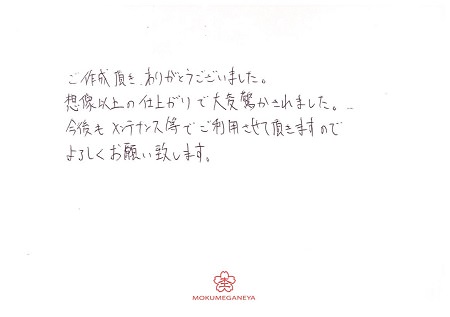 ご作成頂き、ありがとうございました。
想像以上の仕上がりで大変驚かされました。
今後もメンテナンス等でご利用させて頂きますので
よろしくお願い致します。
杢
MOKUMEGANEYA